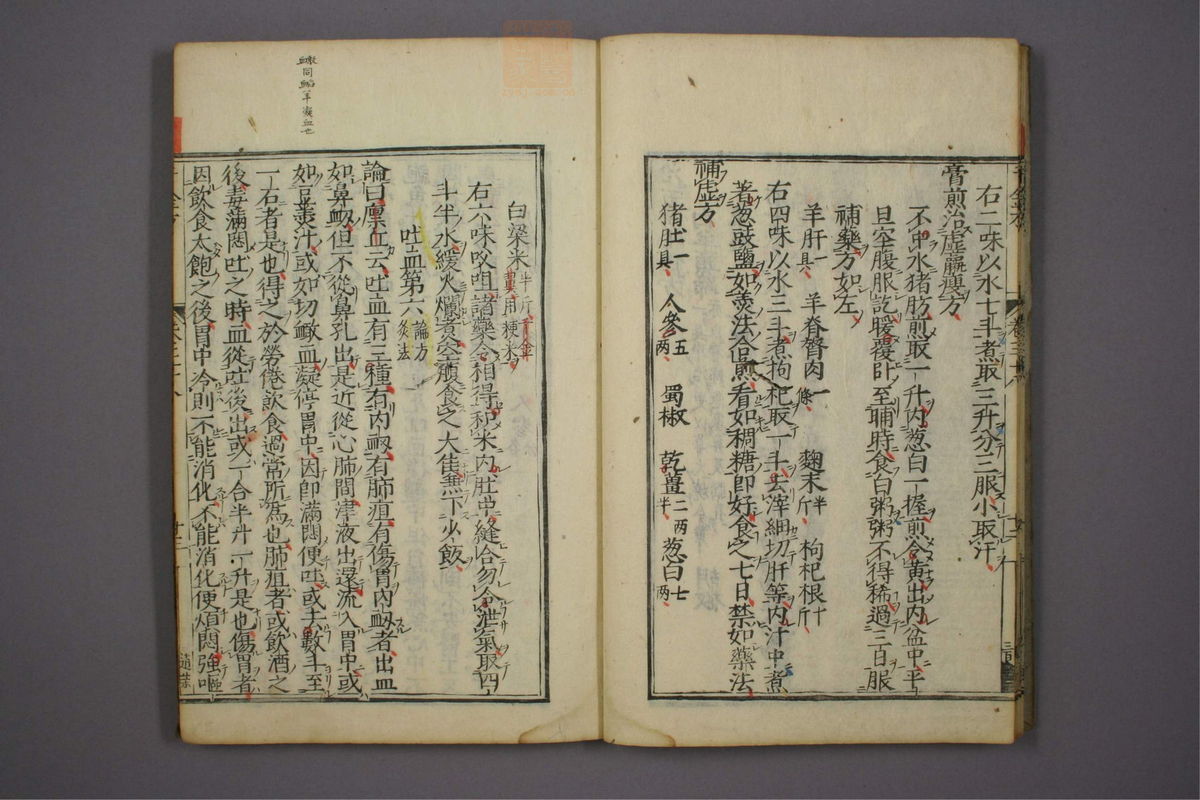 右二味以水七斗煮取三升分三服小取汗
膏煎治虛羸瘦方
不中水猪肪煎取一升内葱白一握煎令黃出内盆中平
旦空腹服訖暖覆臥至晡時食白粥粥不得稀過三日服
補藥方如左
羊肝一具 羊脊膂肉一條 麴末半斤 枸杞根十斤
右四味以水三斗煮枸杞取一斗去滓細切肝等内汁中煮
著葱豉鹽如羹法合煎看如稠糖即好食之七日禁如藥法
補虛方
猪肚一具 人參五兩 蜀椒 乾薑二兩半 葱白七兩
白梁米半斤千金翼用粳米
右六味㕮咀諸藥令相得和米内肚中縫合勿令泄氣取四
斗半水緩火爛煮空腹食之大佳兼下少飯
吐血第六論方灸法
論曰廩丘云吐血有三種有内衂有肺疽有傷胃内衂者出血
如鼻衂但不從鼻孔出是近從心肺間津液出還流入胃中或
如豆羹汁或如切䘓血凝停胃中因即滿悶便吐或去數斗至
一石者是也得之於勞倦飲食過常所爲也肺疽者或飲酒之
後毒滿悶吐之時血從吐後出或一合半升一升是也傷胃者
因飲食太飽之後胃中冷則不能消化不能消化便煩悶強嘔